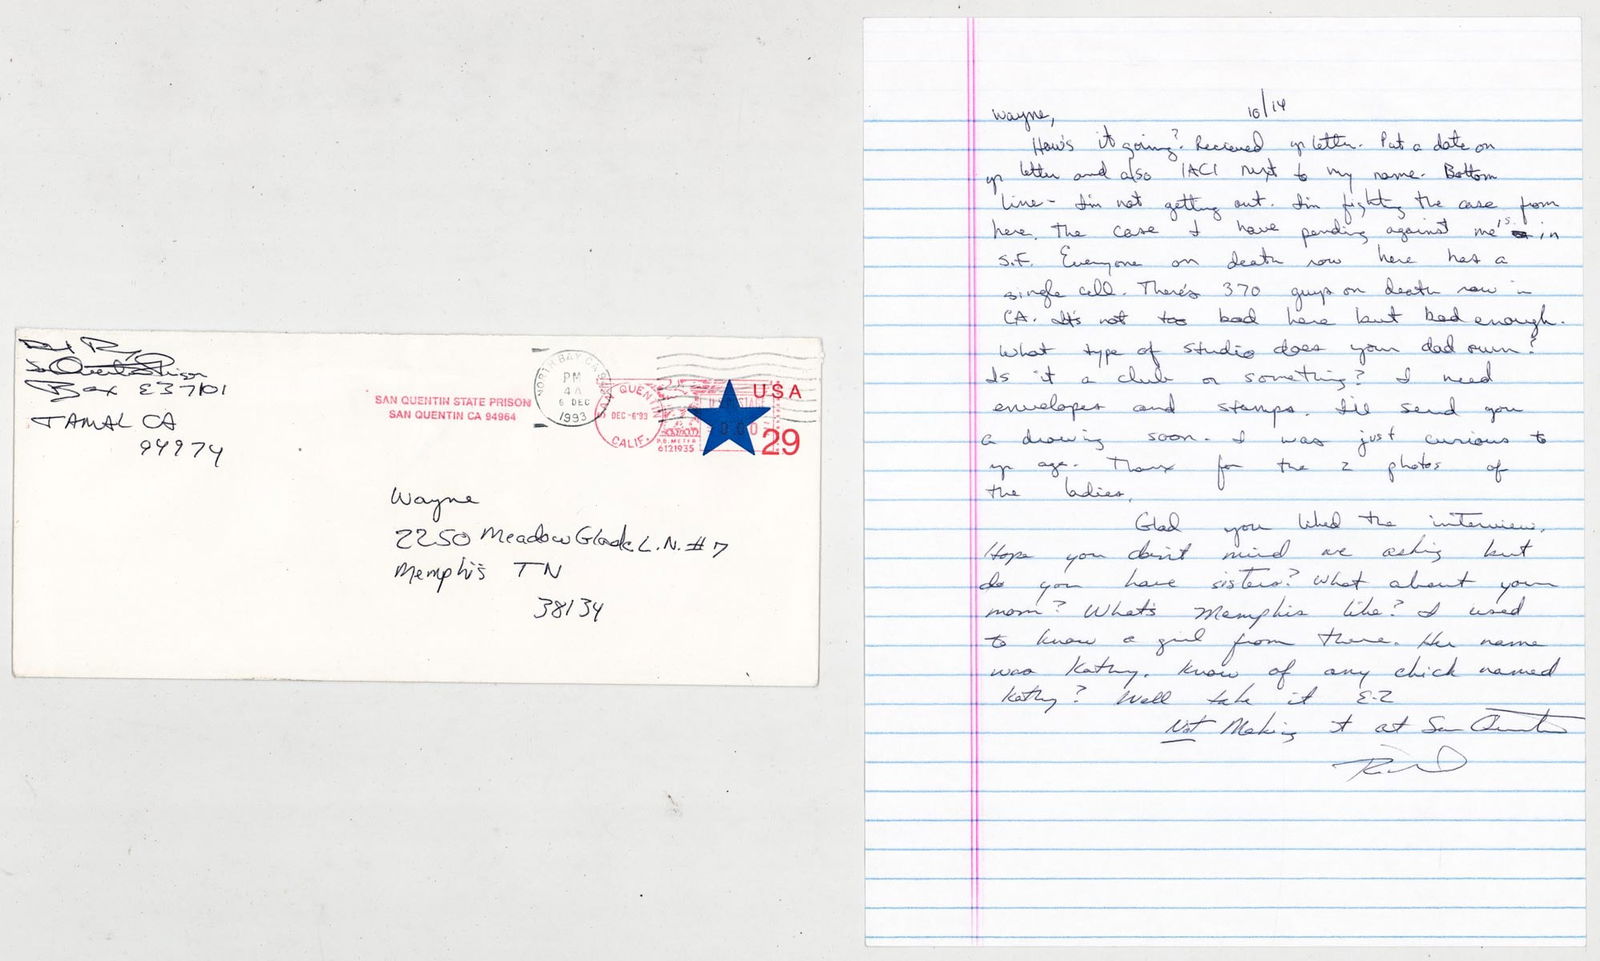 San Quentin Prison
Box E37101
TAMAL CA
94974
SAN QUENTIN STATE PRISON
SAN QUENTIN CA 94964
NORTH BAY CA
PM
4A
6 DEC
1993
SAN QUENTIN
DEC-6'93
CALIF.
P.B. METER
6121935
USA
29
Wayne
2250 Meadow Glade L.N. #7
Memphis TN
38134
Wayne, 10/14
How's it going? Recieved yr letter. Put a date on
yr letter and also 1AC1 next to my name. Bottom
line- I'm not getting out. I'm fighting the case from
here. The case I have pending against me's in
S.F. Everyone on death row here has a
single cell. There's 370 guys on death row in
CA. It's not too bad here but bad enough.
What type of studio does your dad own?
Is it a club or something? I need
envelopes and stamps. I'll send you
a drawing soon. I was just curious to
yr age. Thanx for the 2 photos of
the ladies.
Glad you liked the interview.
Hope you don't mind me asking but
do you have sisters? What about your
mom? What's Memphis like? I used
to know a girl from there. Her name
was Kathy. Know of any chick named
Kathy? Well take it E-Z
Not Making it at San Quentin